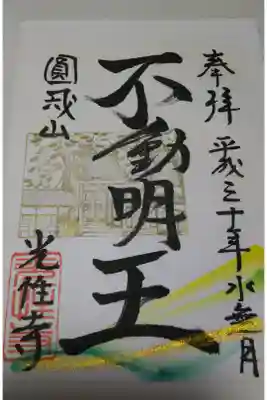 奉拝 平成三十年水無月
不動明王
圓戒山
光性寺